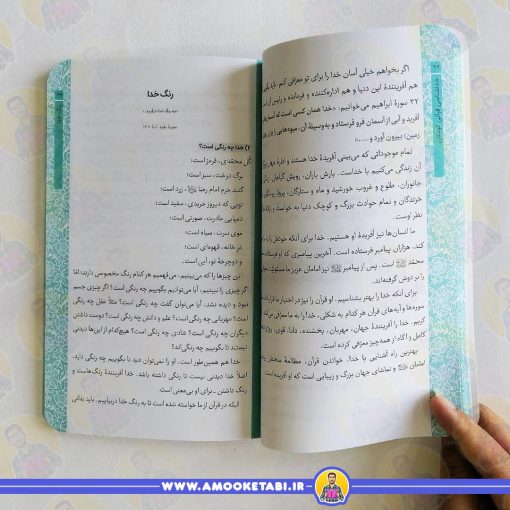 اگر بخواهیم خیلی آسان خدا را برای تو معرّفی کنم، باید بگویم
هم آفرینندهٔ این دنیا و هم اداره‌کننده و فرمانده و رئیس آن است
۲۲ سورهٔ ابراهیم می‌خوانیم: «خدا همان کسی است که آسمان‌ها
آفرید و آبی از آسمان فرو فرستاد و به وسیلهٔ آن، میوه‌هایی از
زمین، بیرون آورد و....»
تمام موجوداتی که می‌بینی آفریدهٔ خدا هستند و ادارهٔ جهان
آن زندگی می‌کنیم با خداست. بارش باران، رویش گیاهان،
جانوران، طلوع و غروب خورشید و ماه و ستارگان، پرواز
خزندگان و تمام حوادث بزرگ و کوچک دنیا به خواست و
نظر اوست.
ما انسان‌ها نیز آفریدهٔ او هستیم. خدا برای آنکه خودش را به
کند، هزاران پیامبر فرستاده است. آخرین پیامبری که او فرستاده
محمّد است. پس از پیامبر نیز امامان عزیز ما مسئولیت
را بر دوش گرفته‌اند.
برای آنکه خدا را بهتر بشناسیم، او قرآن را نیز در اختیار ما قرار داده
سوره‌ها و آیه‌های قرآن هر کدام به شکلی، خدا را به ما معرّفی می‌کنند
کریم، خدا را آفرینندهٔ جهان، مهربان، بخشنده، دانا، قوی،
کامل و آگاه از همه چیز معرّفی کرده است.
بهترین راه آشنایی با خدا، خواندن قرآن، مطالعهٔ سخنان
امامان و تماشای جهان بزرگ و زیبایی است که او آفریده است
رنگ خدا
سورهٔ بقره، آیهٔ ۱۳۸
۲) خدا چه رنگی است؟
گل محمّدی، قرمز است؛
برگ درخت، سبز است؛
گنبد حرم امام رضا، زرد است؛
توپی که دیروز خریدی، سفید است؛
دمپایی مادرت، صورتی است؛
موی سرت، سیاه است؛
در خانه، قهوه‌ای است؛
و دوچرخهٔ تو، آبی است.
این چیزها را که می‌بینیم، می‌فهمیم هر کدام رنگ مخصوصی دارند؛ امّا
اگر چیزی را نبینیم، آیا می‌توانیم بگوییم چه رنگی است؟ اگر چیزی جسم
نبود و دیده نشد، آیا می‌توان گفت چه رنگی است؟ مثلاً عقل چه رنگی
است؟ مهربانی چه رنگی است؟ علم و دانش چه رنگی است؟ دوست داشتن
دیگران چه رنگی است؟ شادی چه رنگی است؟ هیچ‌کدام از این‌ها دیدنی
نیستند تا بگوییم چه رنگی‌اند؟
خدا هم همین‌طور است. او را نمی‌توان دید تا بگوییم چه رنگی دارد.
اصلاً خدا دیدنی نیست تا رنگی داشته باشد. خدا آفرینندهٔ رنگ‌هاست و
رنگ داشتن ـ برای او بی‌معنی است.
البتّه در قرآن از ما خواسته شده است تا به رنگ خدا دربیاییم. باید بدانی
WWW.AMOOKETABI.IR